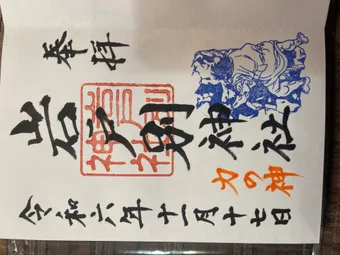 奉拝
岩戸別神社
力の神
令和六年十一月十七日